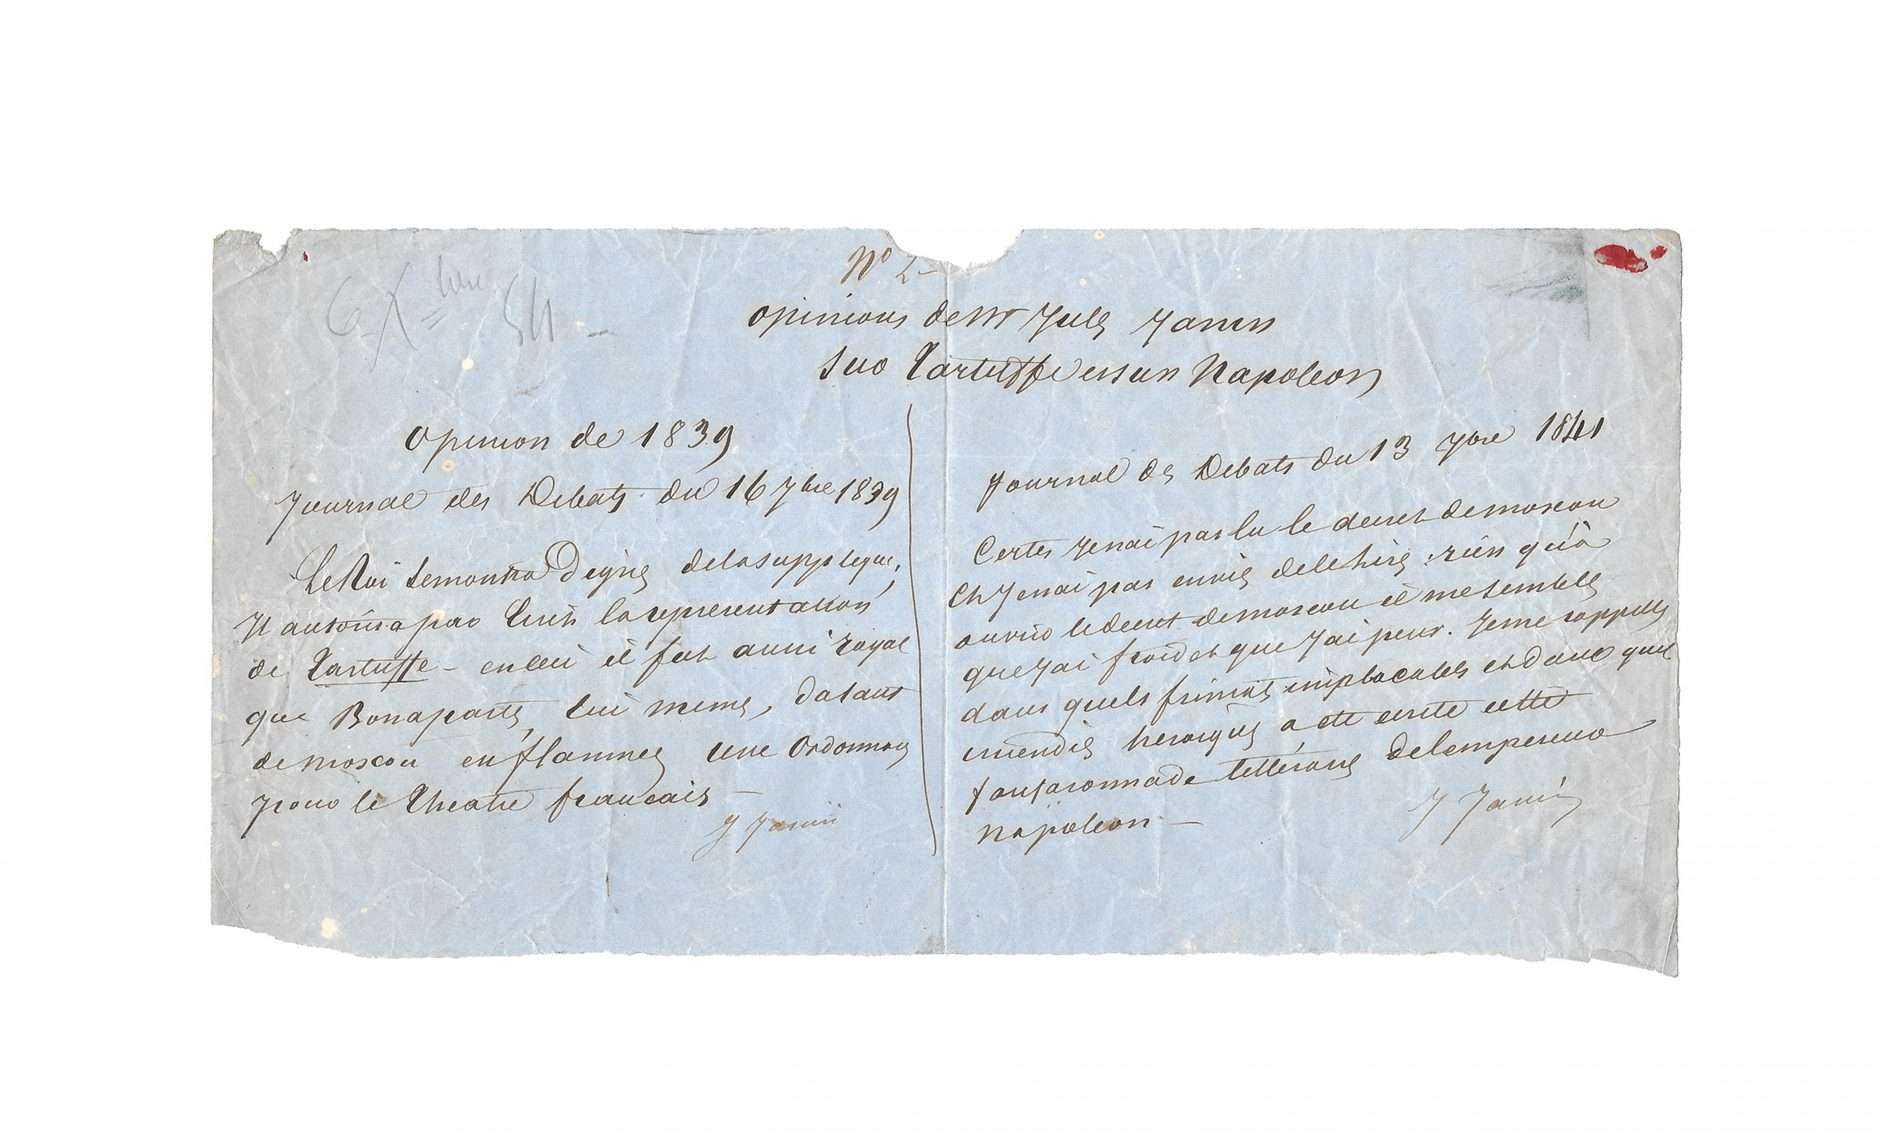 6 Xbre 54
No 2
opinions de Mr Jules Janin
sur Tartuffe et sur Napoleon
opinion de 1839
Journal des Debats du 16 7bre 1839
Le Roi se montra Digne de la supplique,
Il autorisa par écrit la representation
de Tartuffe - en ceci il fut aussi royal
que Bonaparte, lui meme, datant
de moscou en flammes une Ordonnance
pour le theatre francais -
J Janin
Journal des Debats du 13 7bre 1841
Certes Je n'ai pas lu le decret de moscou
et Je n'ai pas envie de le lire, rien qu'à
ouvrir le decret de moscou il me semble
que J'ai froid et que J'ai peur. Je me rappelle
dans quels frimats implacables et dans quel
incendie heroique a été ecrite cette
fanfaronnade littéraire de l'empereur
Napoleon -
J Janin